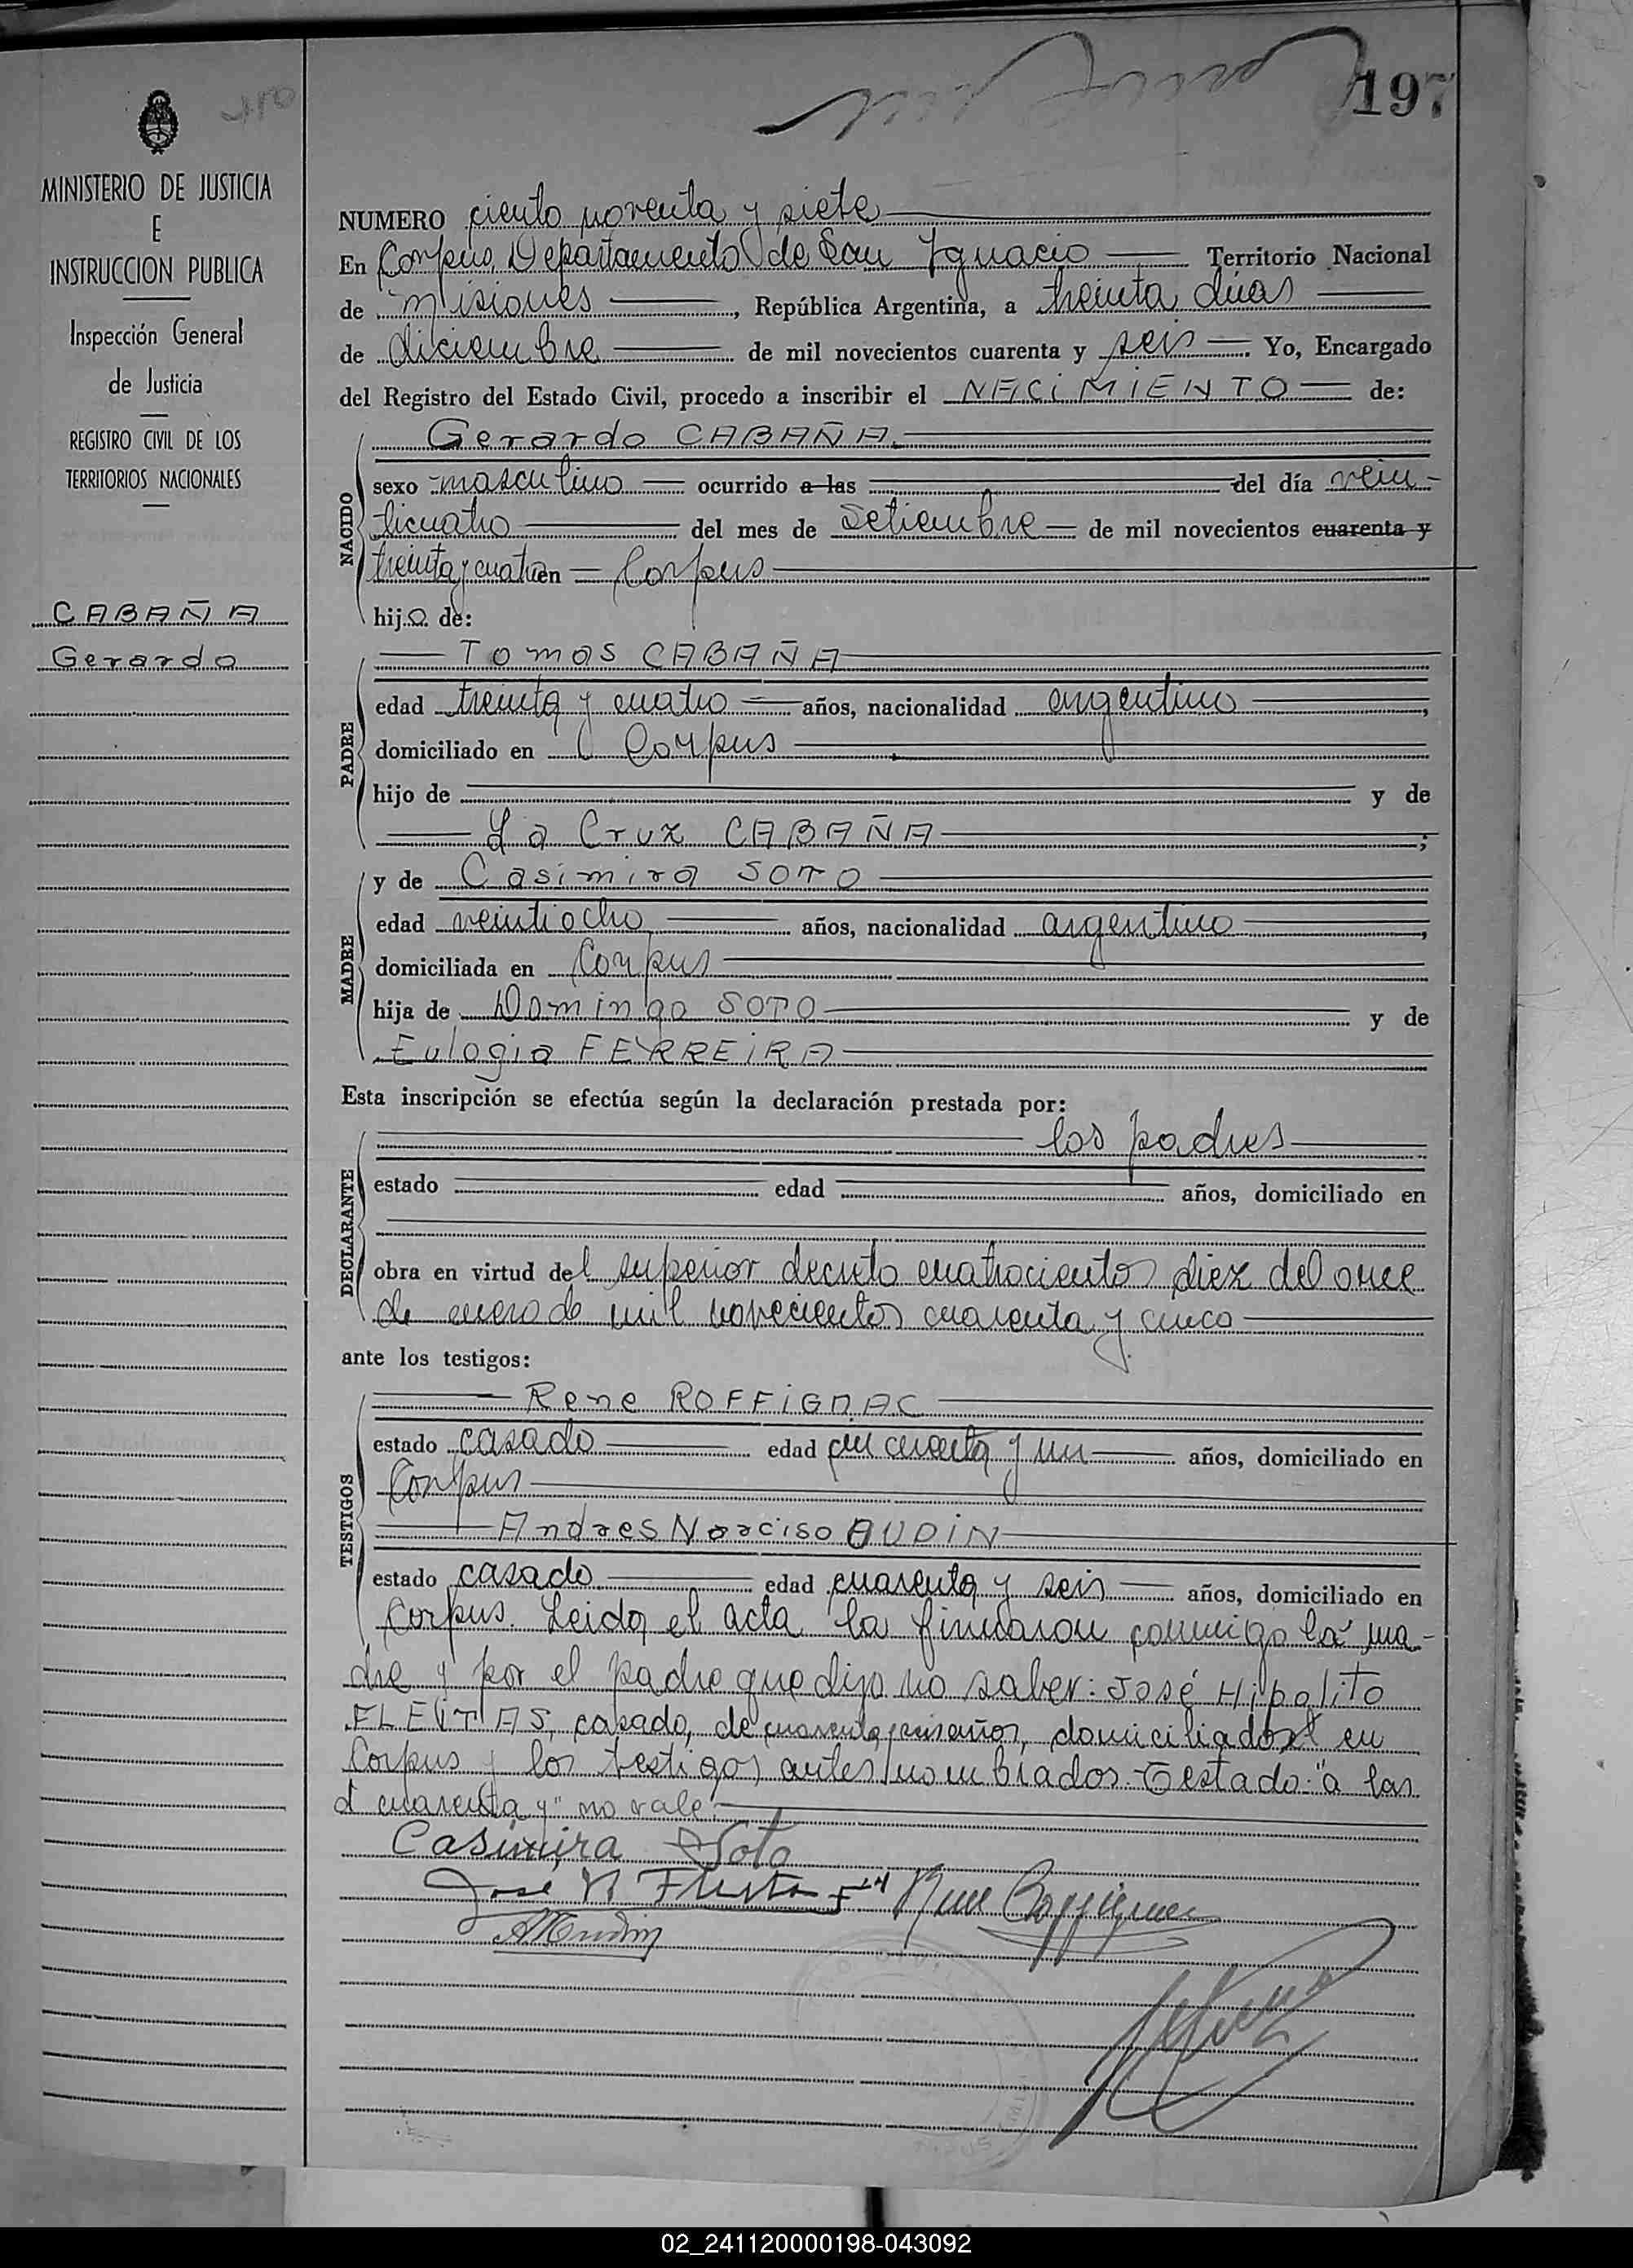 197
MINISTERIO DE JUSTICIA
E
INSTRUCCION PUBLICA
Inspección General
de Justicia
REGISTRO CIVIL DE LOS
TERRITORIOS NACIONALES
CABAÑA
Gerardo
NUMERO ciento noventa y siete
En Corpus, Departamento de San Ignacio Territorio Nacional
de Misiones, República Argentina, a treinta dias
de diciembre de mil novecientos cuarenta y seis. Yo, Encargado
del Registro del Estado Civil, procedo a inscribir el NACIMIENTO de:
Gerardo CABAÑA.
NACIDO
sexo masculino ocurrido a las del día vein-
ticuatro del mes de Setiembre de mil novecientos cuarenta y
treinta y cuatro en Corpus
hijo de:
PADRE
Tomas CABAÑA
edad treinta y cuatro años, nacionalidad argentino,
domiciliado en Corpus
hijo de y de
La Cruz CABAÑA;
MADRE
y de Casimira SOTO
edad veintiocho años, nacionalidad argentino,
domiciliada en Corpus
hija de Domingo SOTO y de
Eulogia FERREIRA
Esta inscripción se efectúa según la declaración prestada por:
DECLARANTE
los padres
estado edad años, domiciliado en
obra en virtud del superior decreto cuatrocientos diez del once
de enero de mil novecientos cuarenta y cinco
ante los testigos:
TESTIGOS
Rene ROFFIGNAC
estado casado edad cincuenta y un años, domiciliado en
Corpus
Andres Narciso AUDIN
estado casado edad cuarenta y seis años, domiciliado en
Corpus. Leida el acta la firmaron conmigo la ma-
dre y por el padre que dijo no saber: José Hipolito
FLEITAS, casado, de cuarenta y seis años, domiciliado en
Corpus y los testigos antes nombrados. Testado: "a las
cuarenta y" no vale.
Casimira Soto
Jose H Fleitas
02_241120000198-043092